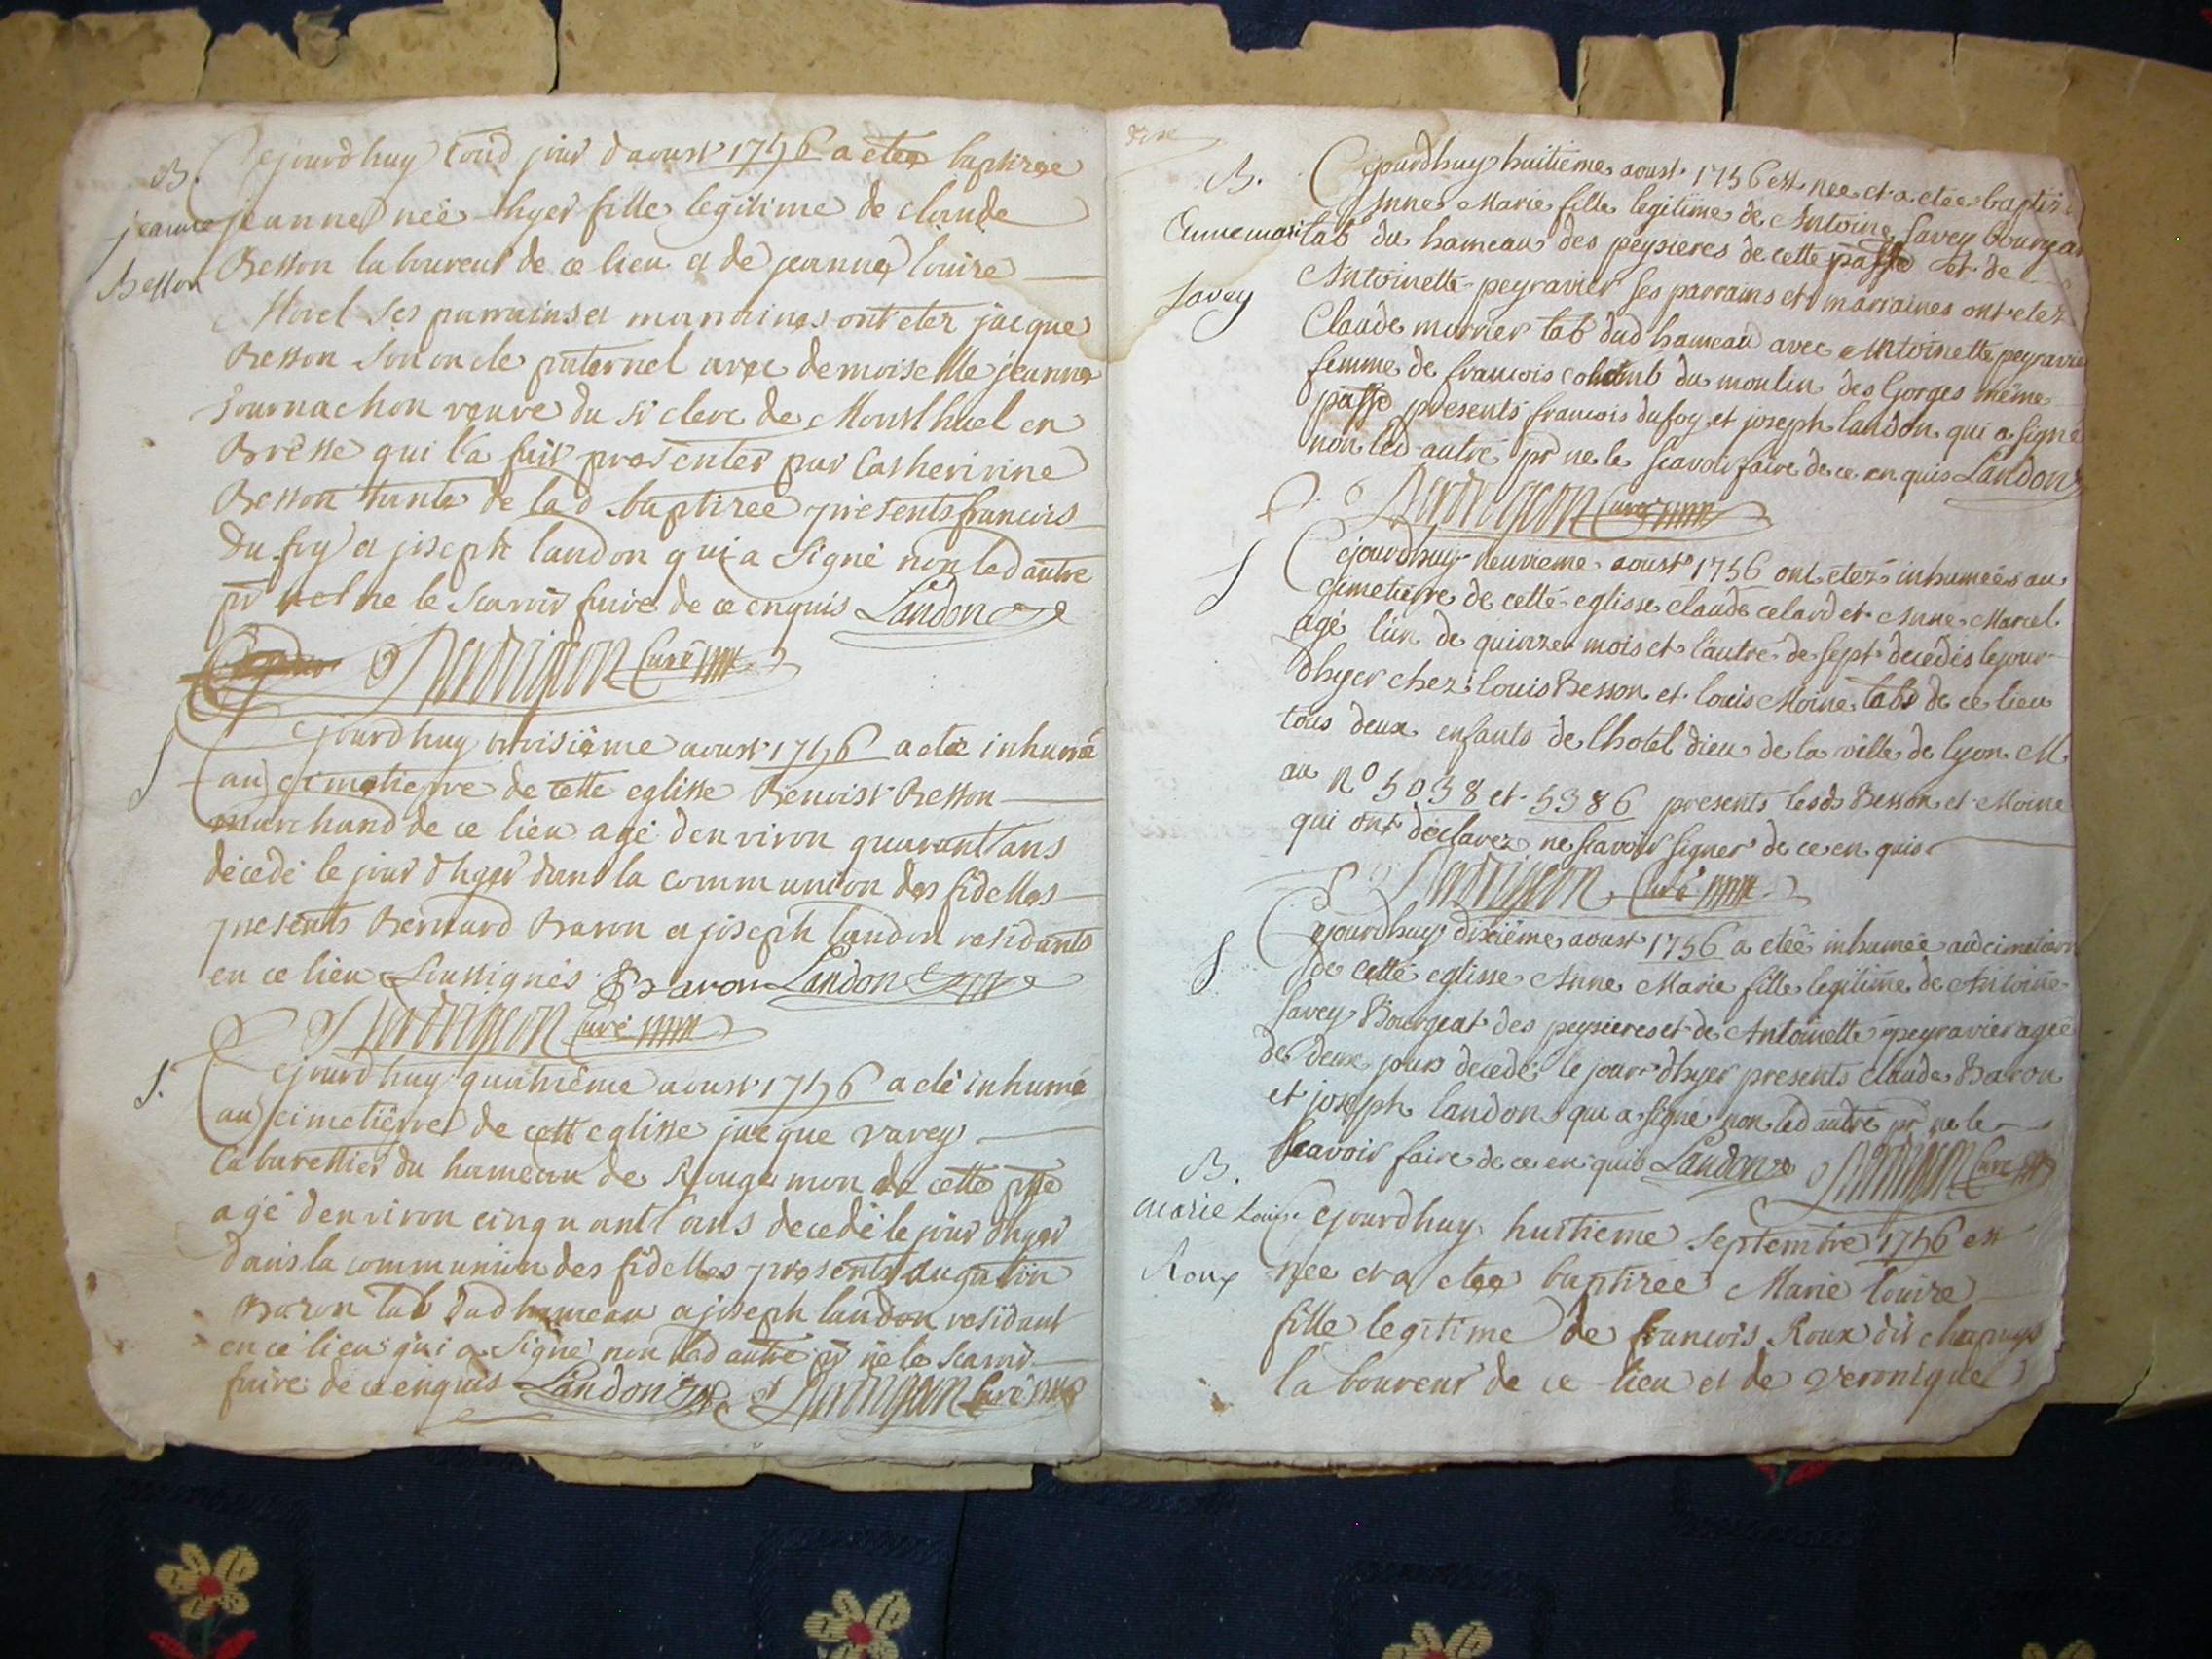 B.
jeanne
Besson
Cejourdhuy cond jour d'aoust 1756 a eteé baptizee
jeanne neé hyer fille legitime de claude
Besson laboureur de ce lieu et de jeanne louise
Morel ses parrains et marraines ont etez jacque
Besson son oncle paternel avec demoiselle jeanne
journachon veuve du sr clerc de Montluel en
Bresse qui l'a fait presenter par Catherinne
Besson tante de lad baptizeé presents francois
Dufoy et joseph landon qui a signé non led autre
pr ne le scavoir faire de ce enquis Landon
Curé
S
Cejourdhuy troisiëme aoust 1756 a eté inhumé
au cimetierre de cette eglisse Benoist Besson
marchand de ce lieu agé d'environ quarant'ans
décedé le jour d'hyer dans la communion des fidelles
presents Bernard Baron et joseph landon residants
en ce lieu soussignés B Baron Landon
Curé
S.
Cejourdhuy quatriéme aoust 1756 a eté inhumé
au cimetiérre de cette eglisse jacque varey
Cabarettier du hameau de Rougemon de cette psse
agé denviron cinquant'ans decedé le jour d'hyer
dans la communion des fidelles presents augustin
Baron lab dud hameau et joseph landon residant
en ce lieu qui a signé non led autre pr ne le scavoir
faire de ce enquis Landon Curé
B.
Annemarie
Savey
Cejourdhuy huitieme aoust 1756 est neé et a eteé baptisé
Anne Marie fille legitime de Antoine Savey Bourgeat
lab du hameau des peysieres de cette passe et de
Antoinette peyravier ses parrains et marraines ont etez
Claude murier lab dud hameau avec Antoinette peyravier
femme de francois colomb du moulin des Gorges même
passe presents francois dufoy et joseph landon qui a signé
non led autre pr ne le scavoir faire de ce enquis Landon
Curé
S
Cejourdhuy neuvieme aoust 1756 ont etez inhumeés au
cimetierre de cette eglisse claude celard et Anne Marcel
agé l'un de quinze mois et l'autre de sept decedés le jour
dhyer chez louis Besson et louis Moine labs de ce lieu
tous deux enfants de lhotel dieu de la ville de lyon M
au no 5038 et 5386 presents lesds Besson et Moine
qui ont déclarez ne scavoir signer de ce enquis
Curé
S
Cejourdhuy dixiéme aoust 1756 a eteé inhumée au cimetierre
de cette eglisse Anne Marie fille legitime de Antoine
Savey Bourgeat des peysieres et de Antoinette peyravier ageé
de deux jours decedé le jour dhyer presents claude Baron
et joseph landon qui a signé non led autre pr ne le
scavoir faire de ce enquis Landon Curé
B.
Marie Louise
Roux
Cejourdhuy huitieme septembre 1756 est
neé et a eteé baptizeé Marie louize
fille legitime de francois Roux dit chapuys
laboureur de ce lieu et de veronique